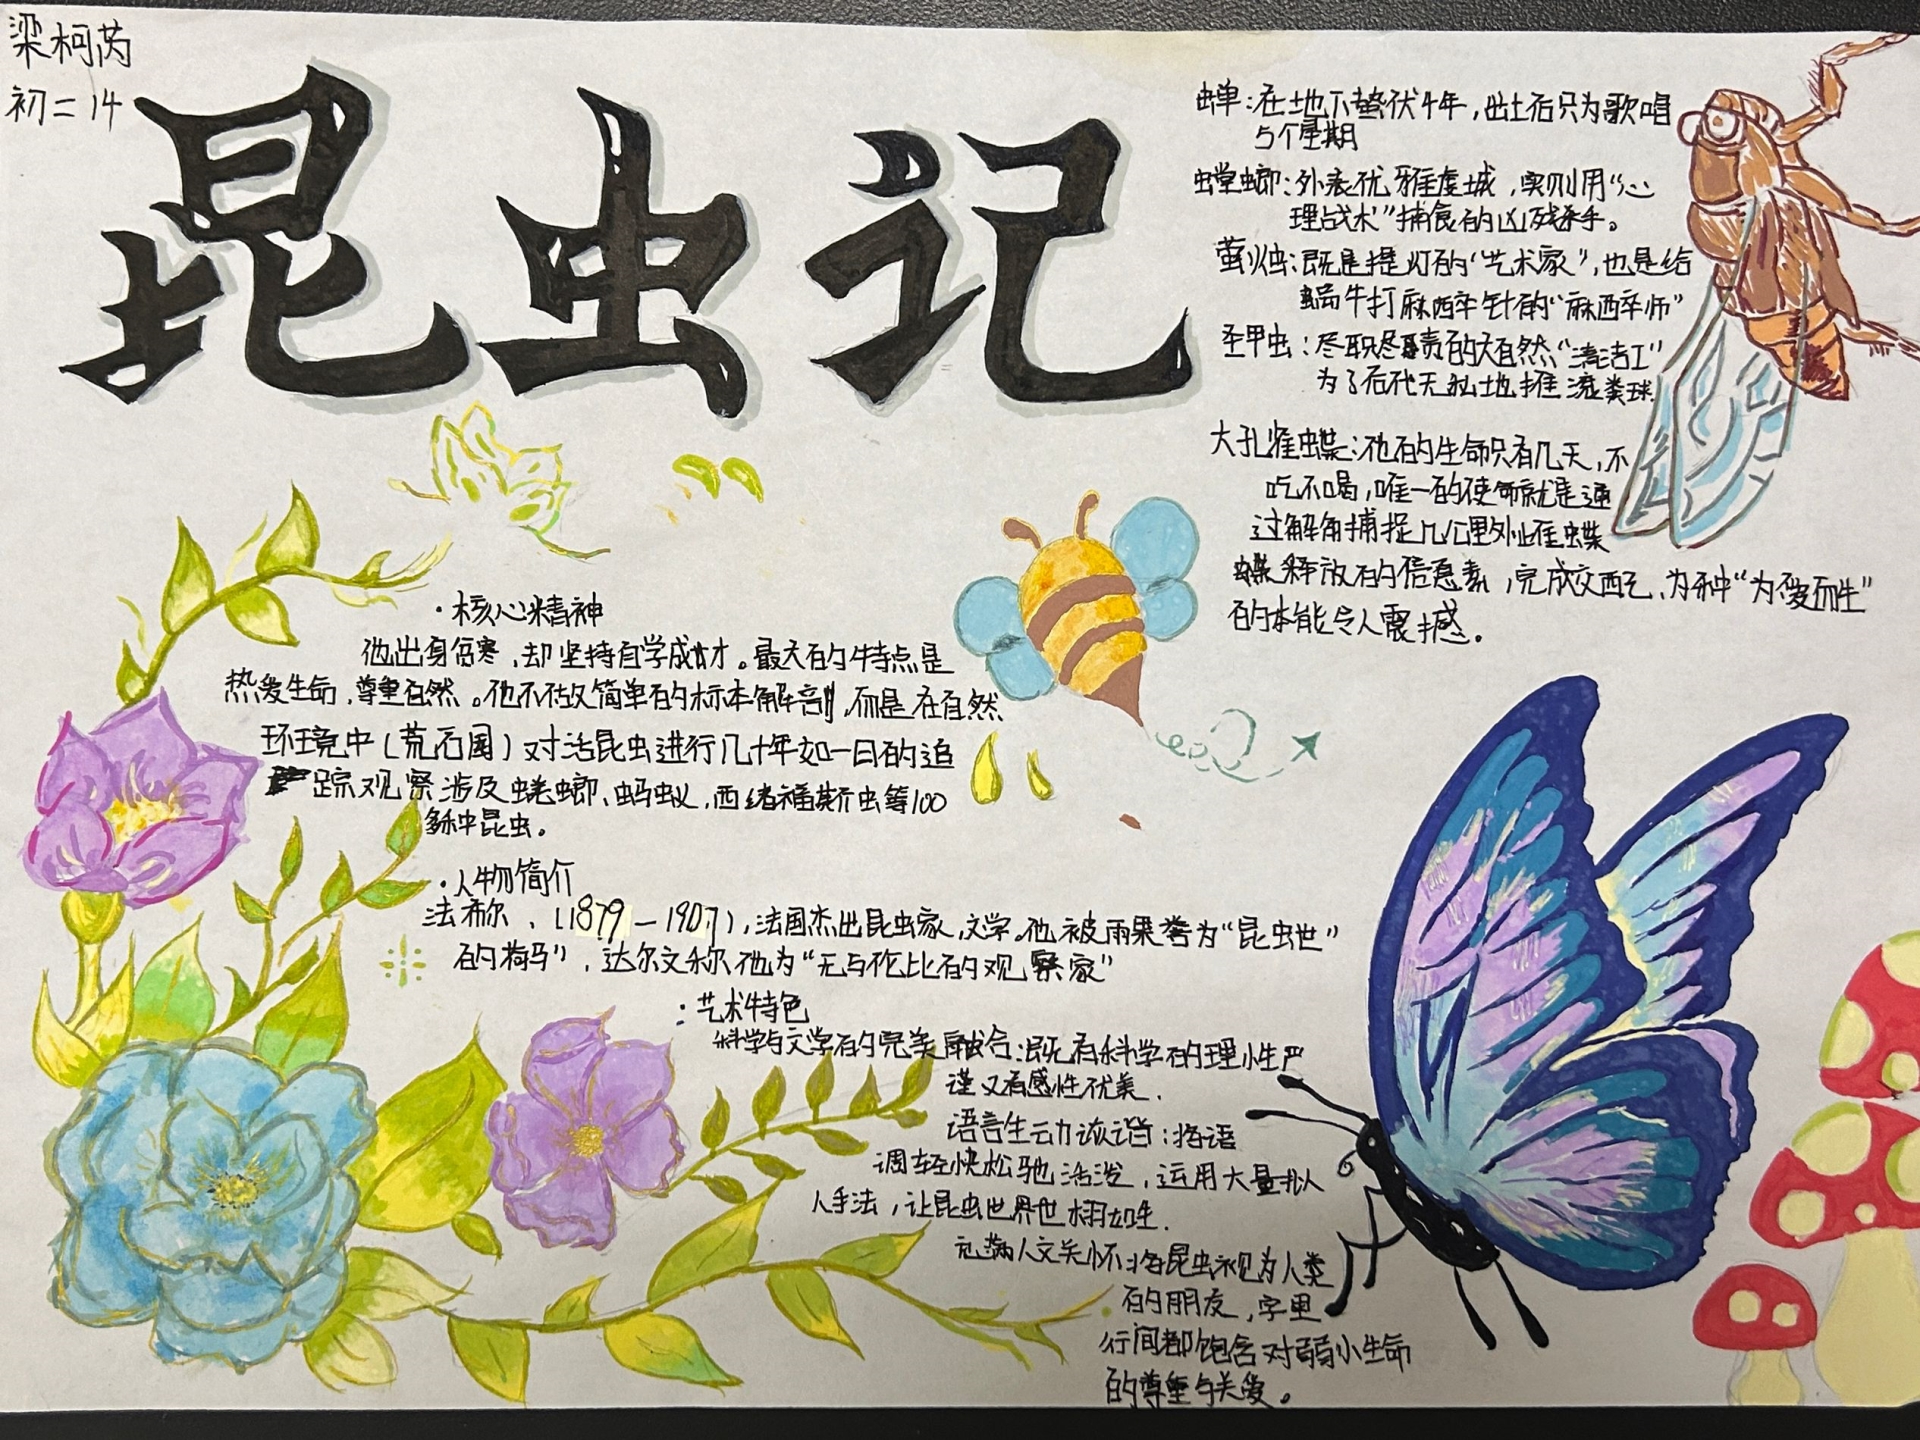 梁柯芮
初二14
昆虫记
蝉:在地下蛰伏4年,出土后只为歌唱
5个星期
螳螂:外表优雅虔诚,实则用“心
理战术”捕食的凶残杀手。
萤火虫:既是提灯的“艺术家”,也是给
蜗牛打麻醉针的“麻醉师”
圣甲虫:尽职尽责的大自然“清洁工”
为了后代无私地推滚粪球
大孔雀蝶:他的生命只有几天,不
吃不喝,唯一的使命就是通
过解角捕捉几公里外雌蝶
释放的信息素,完成交配、为种“为爱而生”
的本能令人震撼。
·核心精神
他出身伤寒,却坚持自学成才。最大的特点是
热爱生命,尊重自然。他不做简单的标本解剖,而是在自然
环境中(荒石园)对活昆虫进行几十年如一日的追
踪观察涉及螳螂、蚂蚁,西绪福斯虫等100
多种昆虫。
·人物简介
法布尔、(1879—1907),法国杰出昆虫家,文学。他被雨果誉为“昆虫世”
的荷马”,达尔文称他为“无与伦比的观察家”
:艺术特色
科学与文学的完美融合:既有科学的理小性严
谨又有感性优美.
语言生动诙谐:将语
调轻快松驰活泼,运用大量拟人
人手法,让昆虫世界也栩如生.
充满人文关怀将昆虫视为人类
的朋友,字里
行间都饱含对弱小生命
的尊重与关爱。